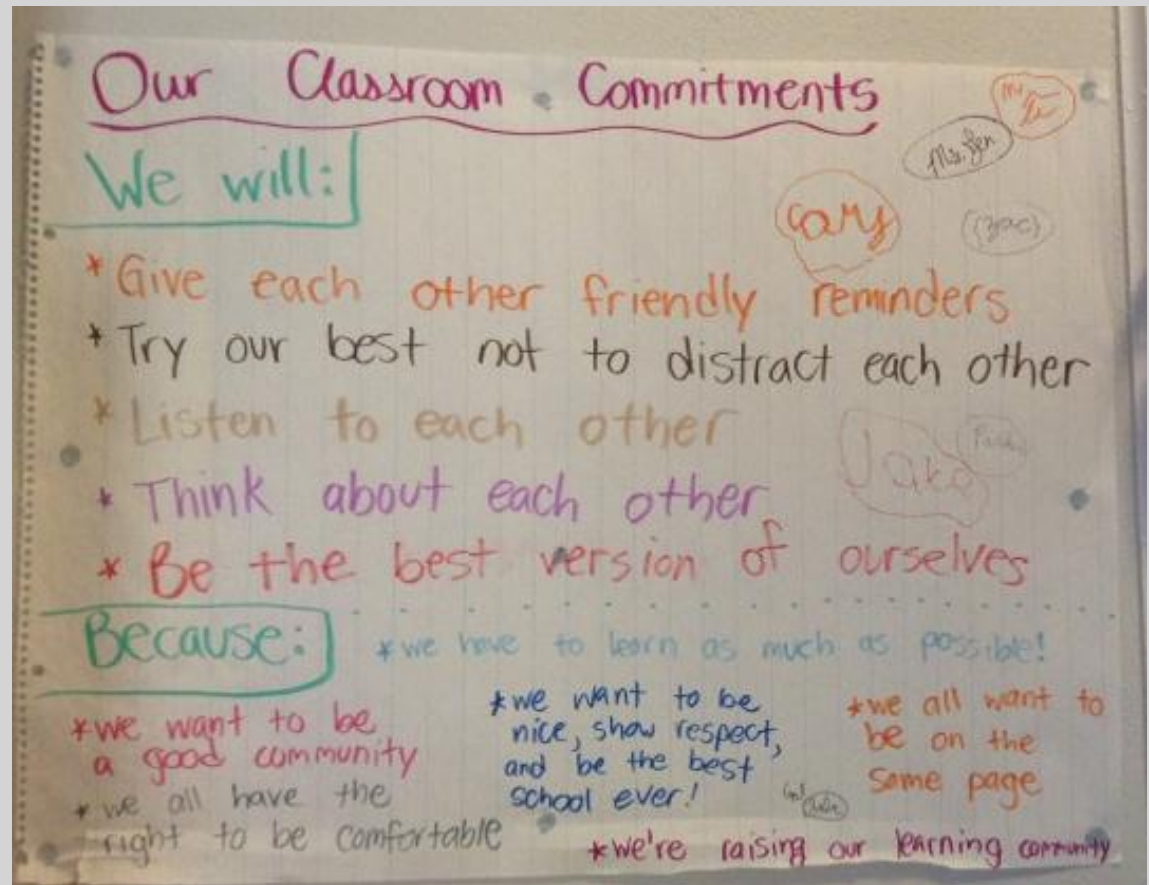 Our Classroom Commitments
We will:
Ms. Jen
Cary
(Zac)
* Give each other friendly reminders
* Try our best not to distract each other
* Listen to each other
Jake
* Think about each other
* Be the best version of ourselves
Because:
* we have to learn as much as possible!
* we want to be
a good community
* we all have the
right to be comfortable
* we want to be
nice, show respect,
and be the best
school ever!
* we all want to
be on the
same page
* we're raising our learning community